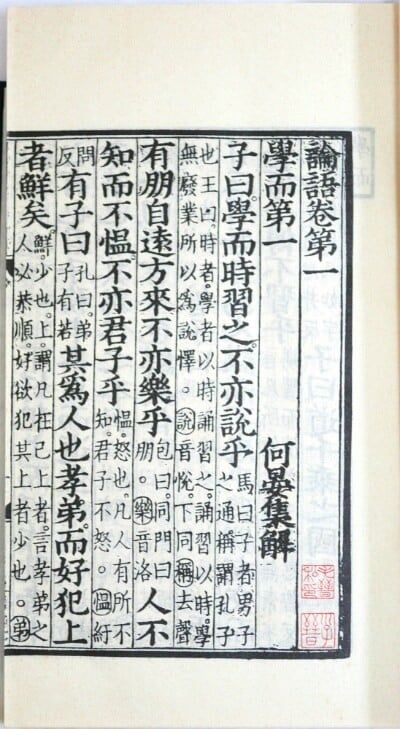 論語卷第一
學而第一 何晏集解
子曰。學而時習之。不亦說乎 馬曰子者男子之通稱謂孔子
也王曰。時者。學者以時誦習之。誦習以時。學無廢業所以爲說懌。說音悅。下同稱去聲
有朋自遠方來不亦樂乎 包曰。同門曰朋。樂音洛 人不
知而不慍。不亦君子乎 慍。怒也。凡人有所不知。君子不怒。慍紆
問反 有子曰 孔曰。弟子有若 其爲人也孝弟。而好犯上
者鮮矣。 鮮。少也。上。謂凡在己上者。言孝弟之人必恭順。好欲犯其上者少也。弟
毛晉私印
子晉